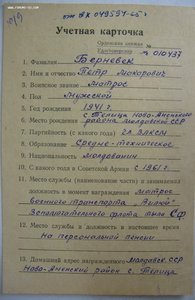 от ВХ 049594-65 г.
Учетная карточка
Орденская книжка
Удостоверение № 010437
1. Фамилия Берневек
2. Имя и отчество Пётр Макарович
3. Воинское звание матрос
4. Пол мужской
5. Год рождения 1941 г.
Место рождения с Телица Ново-Аненского района Молдавской ССР
6. Партийность (с какого года) чл ВЛКСМ
7. Образование Средне-техническое
8. Национальность молдаванин
9. С какого года в Советской Армии с 1961 г.
10. Место службы (наименование части) и занимаемая
должность в момент награждения матрос
военного транспорта
вспомогательного флота тыла СФ
12. Место службы и должность в настоящее время
На персональной пенсии
13. Домашний адрес награжденного Молдавск ССР
Ново-Аненский район с. Телица